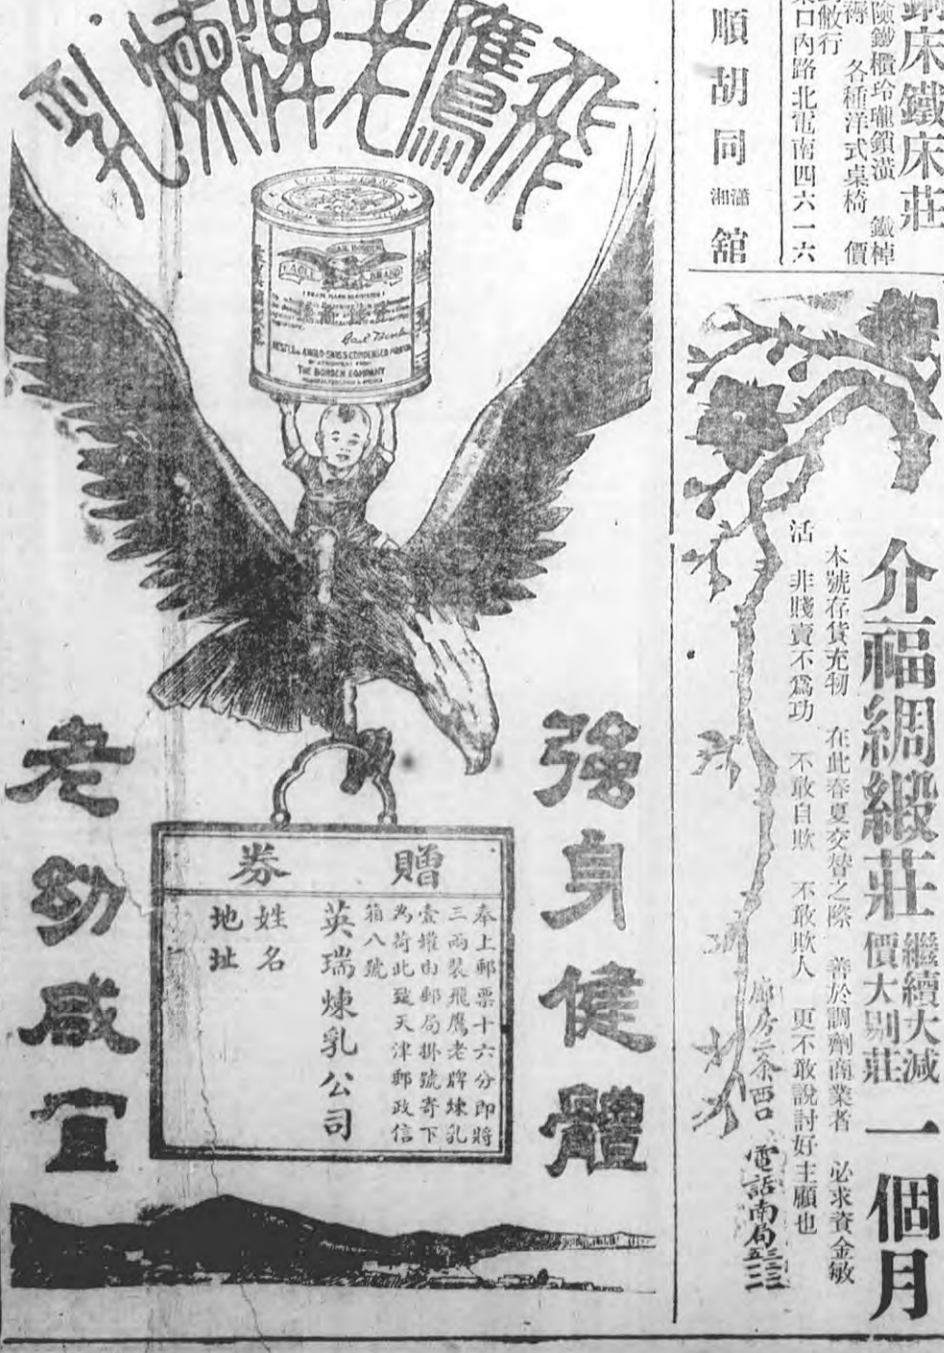 飛鷹老牌煉乳
EAGLE BRAND
GAIL BORDEN
EAGLE BRAND
Gail Borden
NESTLE & ANGLO-SWISS CONDENSED MILK CO
THE BORDEN COMPANY
強身健體
老幼咸宜
贈券
奉上郵票十六分即將
三兩裝飛鷹老牌煉乳
壹罐由郵局掛號寄下
為荷此致天津郵政信
箱八號
英瑞煉乳公司
姓名
地址
銅床鐵床莊
險鐵櫃玲瓏鎖簧 鐵椁
各種洋式桌椅 價
敝行
口內路北電南四六一六
順胡同瀟湘舘
介福綢緞莊
繼續大減
價大別莊
一個月
本號存貨充牣 在此春夏交替之際 善於調劑商業者 必求資金敏
活 非賤賣不為功 不敢自欺 不敢欺人 更不敢說討好主顧也
廊房二条西口
電話南局